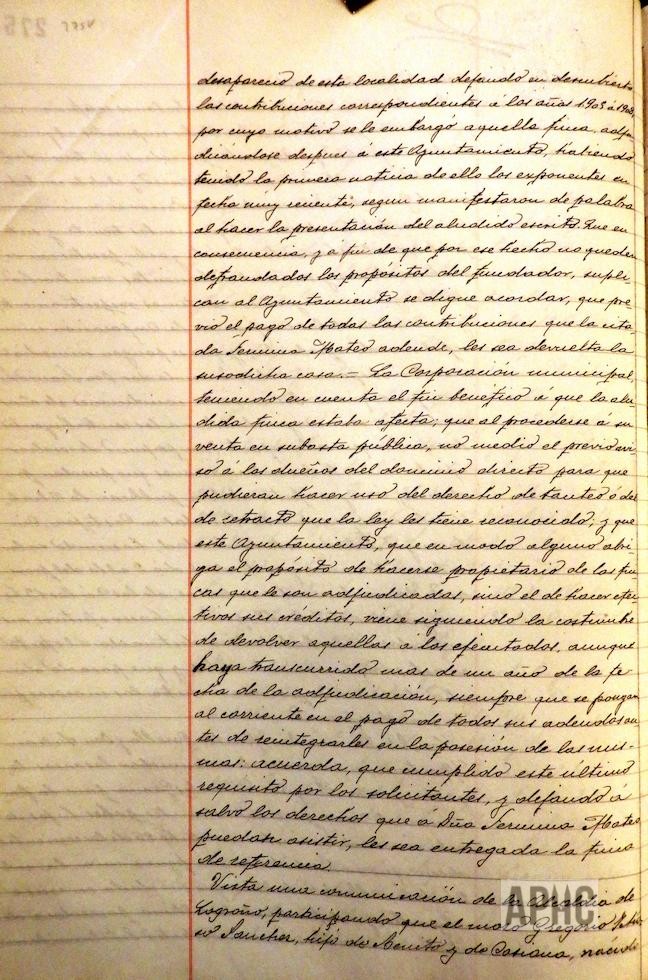 desapareció de esta localidad dejando en descubierto
las contribuciones correspondientes á los años 1903 á 1908,
por cuyo motivo se le embargó aquella finca, adju-
dicándose despues á este Ayuntamiento, habiendo
tenido la primera noticia de ello los exponentes en
fecha muy reciente, segun manifestaron de palabra
al hacer la presentación del aludido escrito. Que en
consecuencia, y á fin de que por ese hecho no queden
defraudados los propósitos del fundador, supli-
can al Ayuntamiento se digne acordar, que pre-
vio el pago de todas las contribuciones que la cita-
da Fermina Mateo adeude, les sea devuelta la
susodicha casa.= La Corporación municipal,
teniendo en cuenta el fin benéfico á que la alu-
dida finca estaba afecta; que al procederse á su
venta en subasta pública, no medió el previo avi-
so á los dueños del dominio directo para que
pudieran hacer uso del derecho de tanteo ó del
de retracto que la ley les tiene reconocido; y que
este Ayuntamiento, que en modo alguno abri-
ga el propósito de hacerse propietario de las fin-
cas que le son adjudicadas, sino el de hacer efec-
tivos sus créditos, viene siguiendo la costumbre
de devolver aquellas á los ejecutados, aunque
haya transcurrido mas de un año de la fe-
cha de la adjudicación, siempre que se pongan
al corriente en el pago de todos sus adeudos an-
tes de reintegrarles en la posesión de las mis-
mas: acuerda, que cumplido este último
requisito por los solicitantes, y dejando á
salvo los derechos que á Dña Fermina Mateo
puedan asistir, les sea entregada la finca
de referencia.
Vista una comunicación de la Alcaldía de
Logroño, participando que el mozo Gregorio
Sanchez, hijo de Benito y de Casiana, nacido
APHC